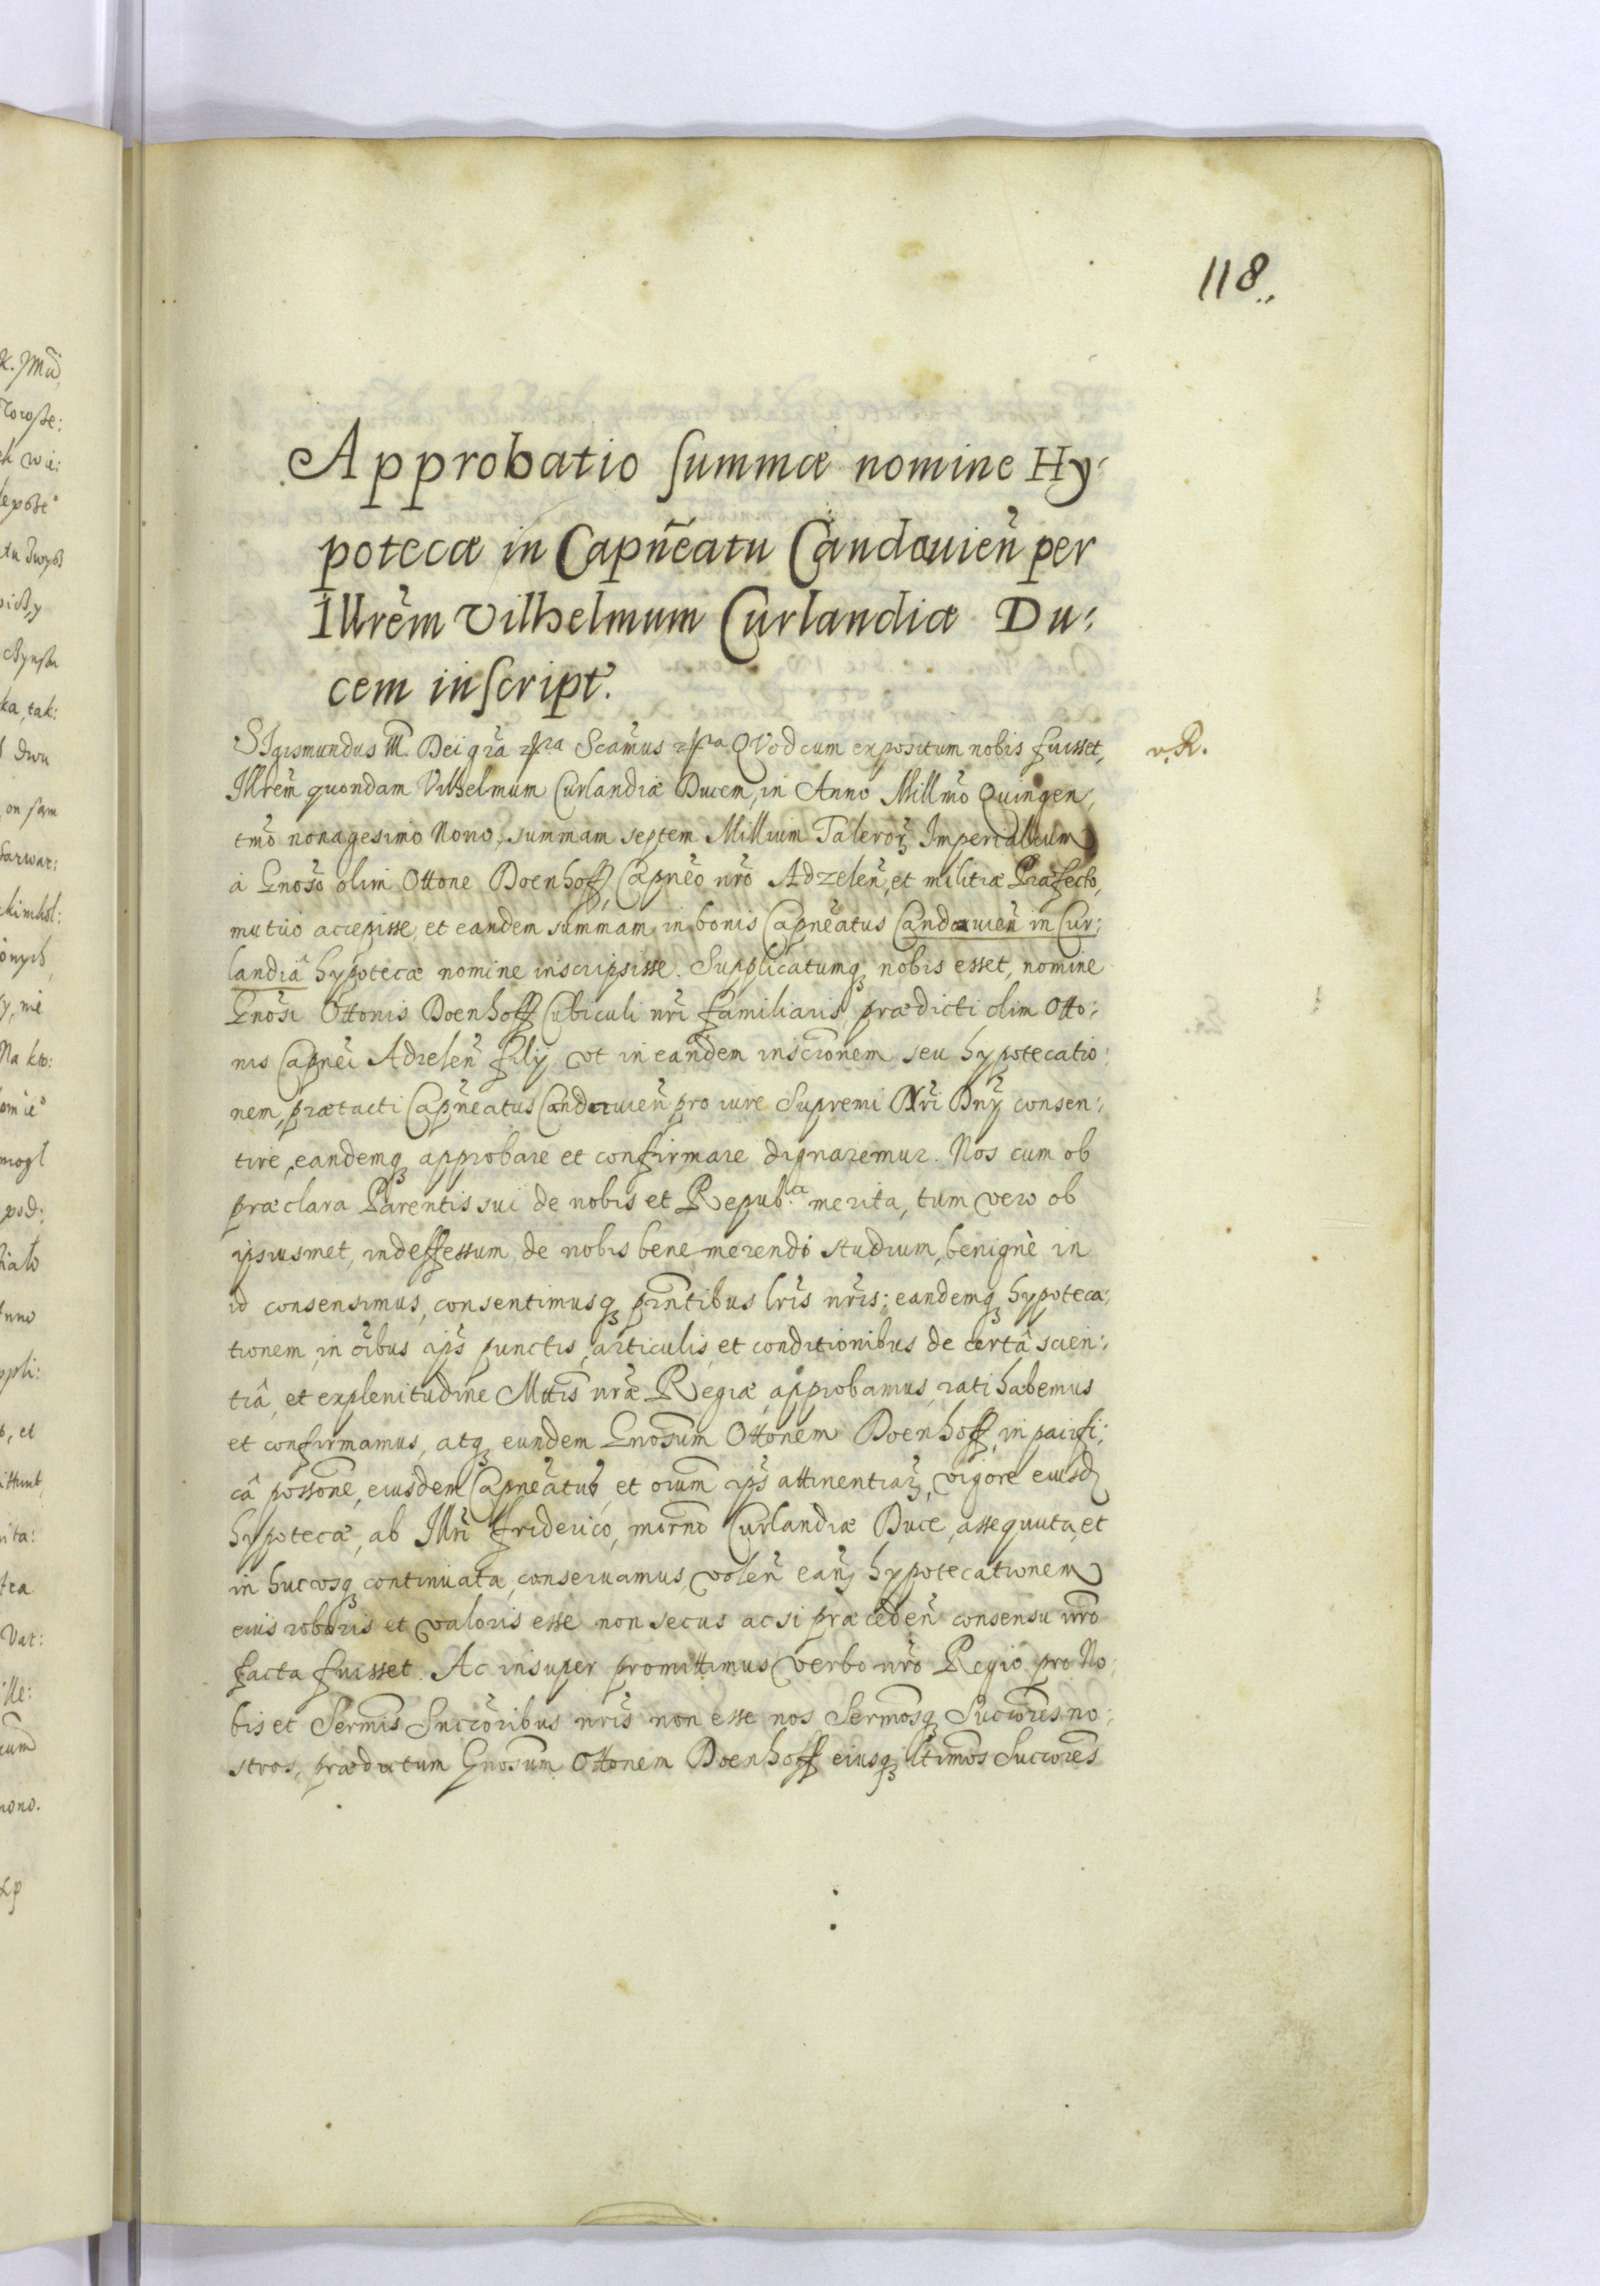 118
Approbatio summæ nomine Hy:
potecæ in Capñeatu Candauieñ per
Illrem Vilhelmum Curlandiæ Du:
cem inscript.
SIgismundus III. Dei gra etc Scamus etc QVod cum expositum nobis fuisset, v. R.
Illrem quondam Vilhelmum Curlandiæ Ducem, in Anno Millmo Quingen,
tmo nonagesimo Nono, summam septem Millium Taleroꝝ Imperialium
à Gnoso olim Ottone Doenhoff, Capneo nro Adzeleñ, et militiæ Præfecto,
mutuo accepisse, et eandem summam in bonis Capneatus Candauieñ in Cur:
landiâ hypotecæ nomine inscripsisse. Supplicatumq nobis esset, nomine
Gnosi Ottonis Doenhoff Cubiculi nri familiaris, prædicti olim Otto:
nis Capnei Adzeleñ filij vt in eandem inscrionem seu hypotecatio:
nem, prætacti Capneatus Candauieñ pro iure Supremi Nri Dnÿ consen:
tire, eandemq approbare et confirmare dignaremur. Nos cum ob
præclara Parentis sui de nobis et Repub.ca merita, tum vero ob
ipsiusmet, indeffessum de nobis bene merendi studium, benignè in
id consensimus, consentimusq pñtibus lris nris; eandemq hypoteca:
tionem, in oibus ips punctis, articulis, et conditionibus de certâ scien:
tiâ, et explenitudine Mttis nræ Regiæ, approbamus, rati habemus
et confirmamus, atq eundem Gnosum Ottonem Doenhoff, in pacifi:
câ possone, eiusdem Capneatus, et oium ips attinentiaꝝ, vigore eiusd
hypotecæ, ab Illri friderico, morno Curlandiæ Duce, assequuta, et
in hucvsq continuata, conseruamus, voleñ eanꝫ hypotecationem
eius roboris et valoris esse non secus ac si præcedeñ consensu nro
facta fuisset. Ac insuper promittimus verbo nro Regio pro No:
bis et Sermis Succoribus nris non esse nos Sermosq Succores no:
stros, prædictum Gnosum Ottonem Doenhoff eiusq ltimos Succores